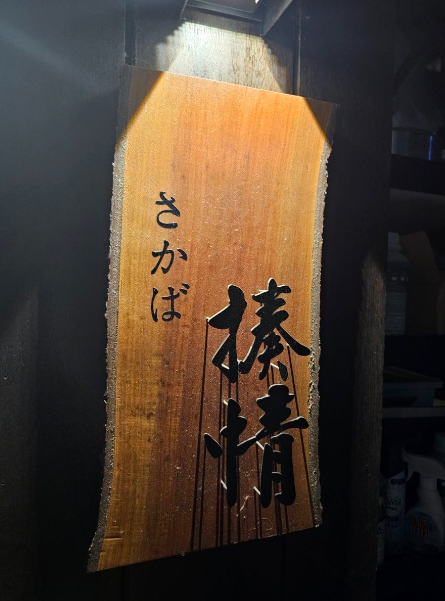 揍情
さかば